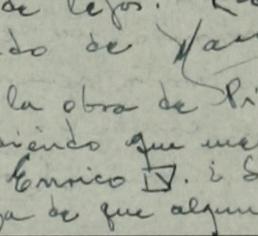 de lejos.
do de
la obra de Pi
iendo que me
Enrico IV. ¿ S
a de que algun